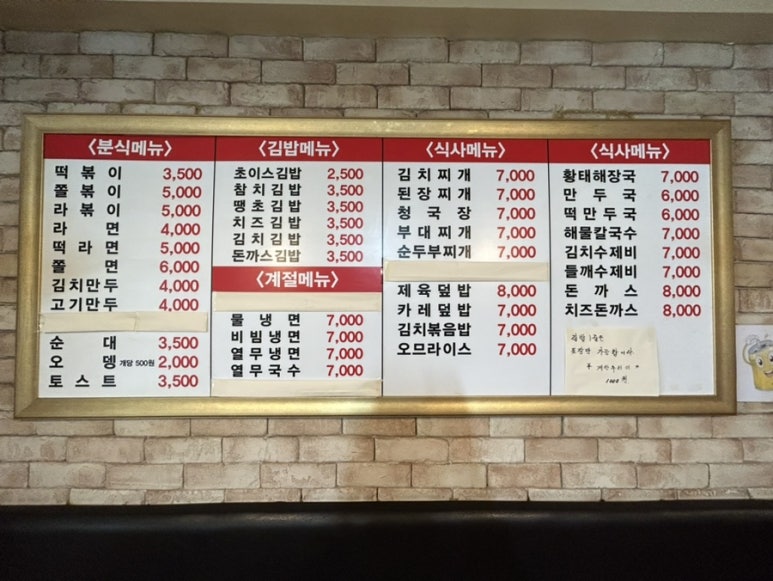 〈분식메뉴〉
떡볶이 3,500
쫄볶이 5,000
라볶이 5,000
라면 4,000
떡라면 5,000
쫄면 6,000
김치만두 4,000
고기만두 4,000
순대 3,500
오뎅 개당 500원 2,000
토스트 3,500
〈김밥메뉴〉
초이스김밥 2,500
참치김밥 3,500
땡초김밥 3,500
치즈김밥 3,500
김치김밥 3,500
돈까스김밥 3,500
〈계절메뉴〉
물냉면 7,000
비빔냉면 7,000
열무냉면 7,000
열무국수 7,000
〈식사메뉴〉
김치찌개 7,000
된장찌개 7,000
청국장 7,000
부대찌개 7,000
순두부찌개 7,000
제육덮밥 8,000
카레덮밥 7,000
김치볶음밥 7,000
오므라이스 7,000
〈식사메뉴〉
황태해장국 7,000
만두국 6,000
떡만두국 6,000
해물칼국수 7,000
김치수제비 7,000
들깨수제비 7,000
돈까스 8,000
치즈돈까스 8,000
김밥 1줄은
포장만 가능합니다
1000원